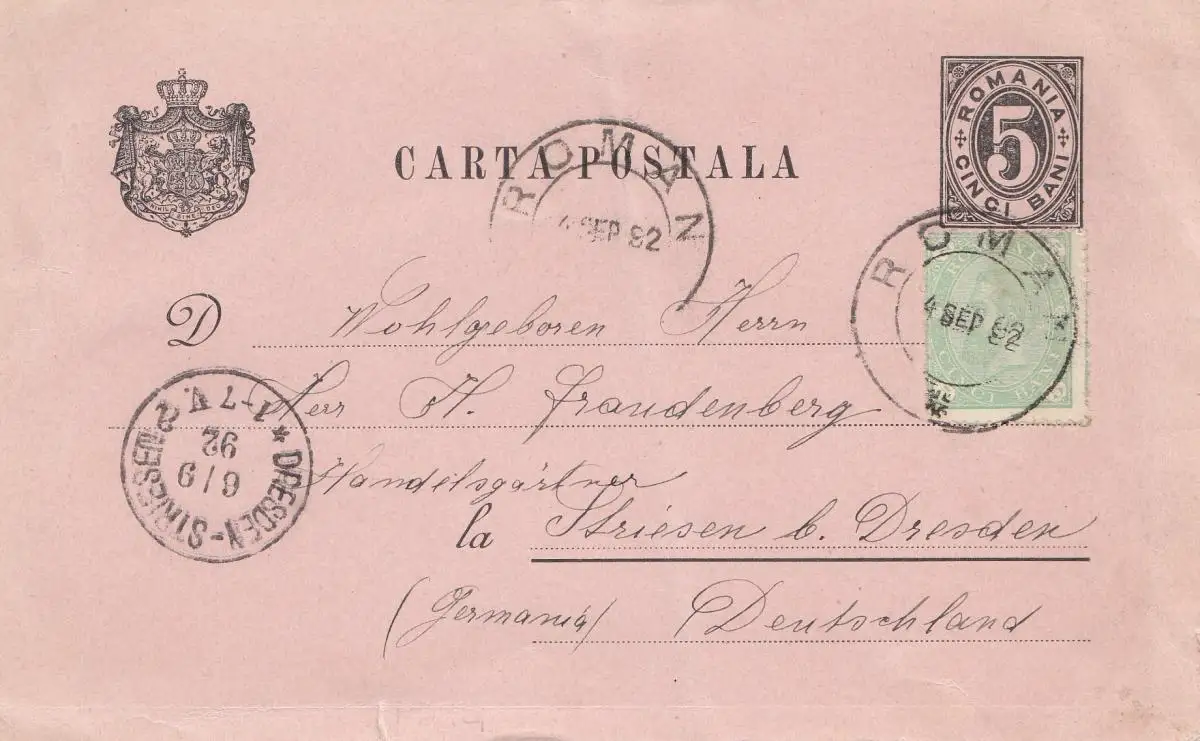 CARTA POSTALA
ROMANIA
5
CINCI BANI
NIHIL SINE DEO
ROMAN
4 SEP 92
ROMAN
4 SEP 92
ROMANIA
CINCI BANI
D Wohlgeboren Herrn
Herr H. Fraudenberg
Handelsgärtner
la Striesen b. Dresden
(Germania) Deutschland
* DRESDEN-STRIESEN 2
6/9
92
1-7 V.